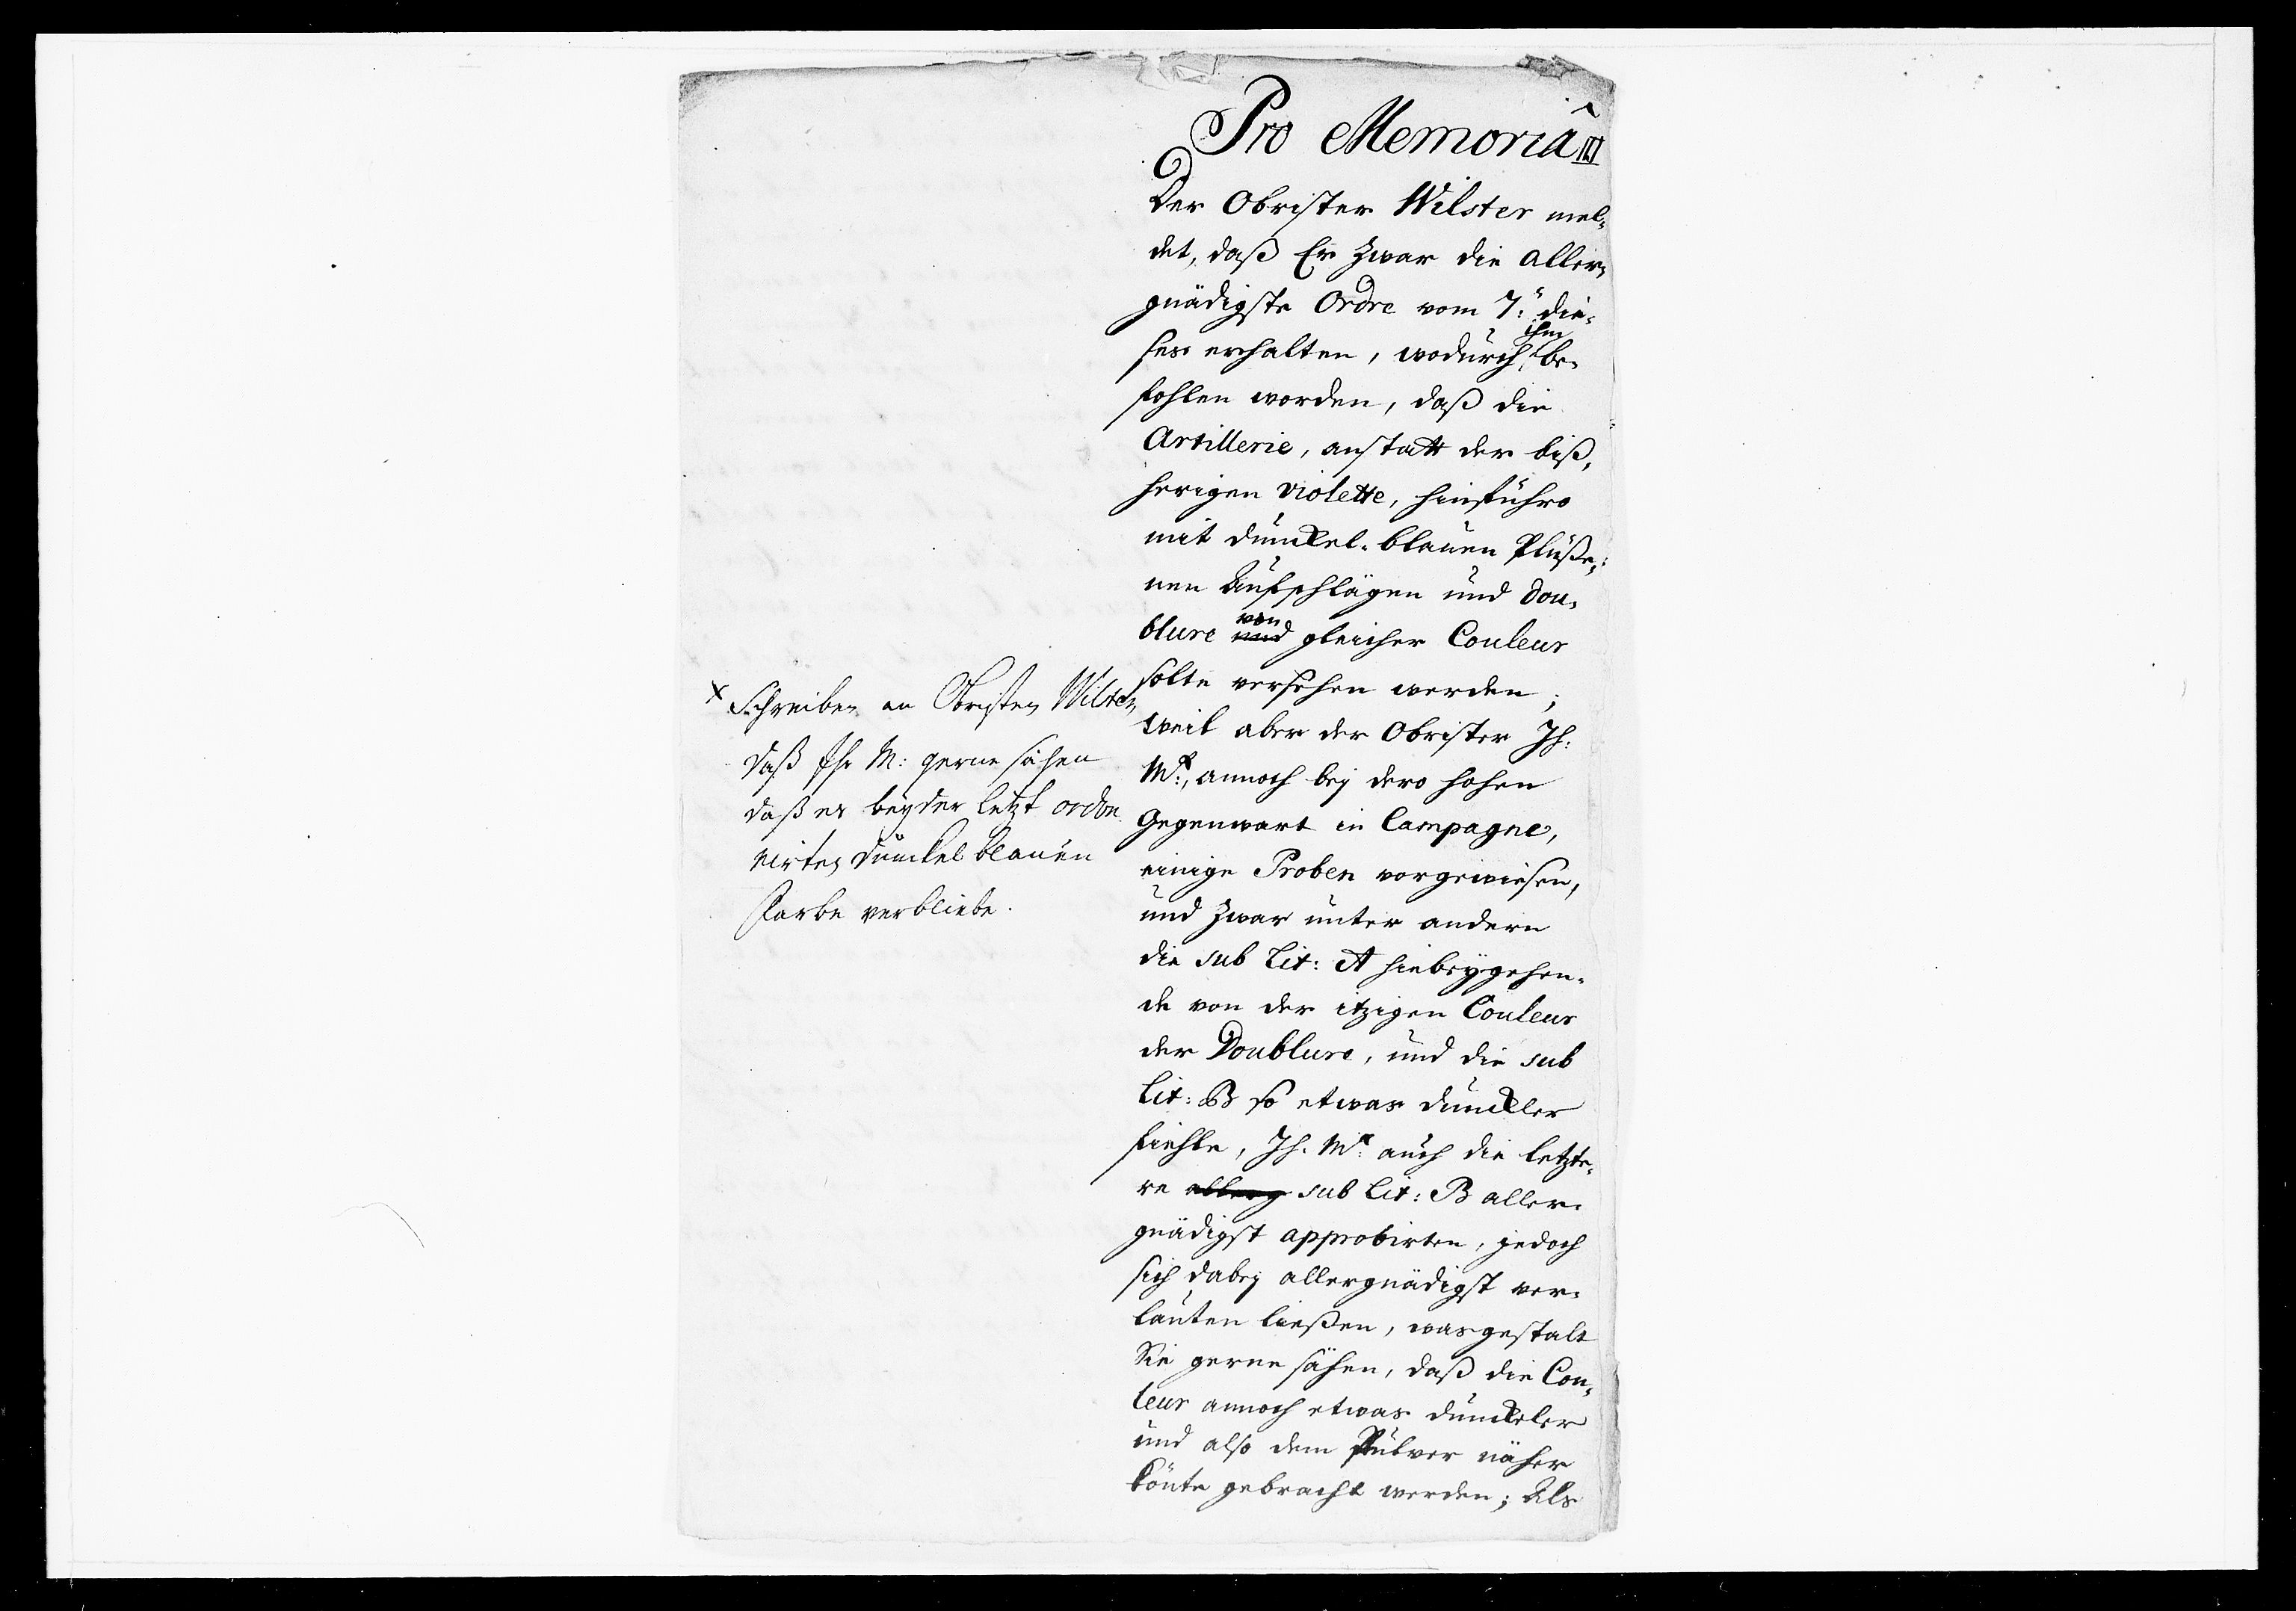 Pro Memoriâ III
Der Obrister Wilster mel-
det, daß Er zwar die aller-
gnädigste Ordre vom 7: die-
ses erhalten, wodurch ihm be-
fohlen worden, daß die
Artillerie, anstatt der biß-
herigen violette, hinführo
mit dunckel-blauen Plüße-
nen Aufschlägen und dou-
blure von gleicher Couleur
solte versehen werden;
weil aber der Obrister Ih:
Mt:, annoch bey dero hohen
Gegenwart in Campagne,
einige Proben vorgewiesen,
und zwar unter andern
die sub Lit: A hiebeygehen-
de von der itzigen Couleur
der Doublure, und die sub
Lit: B so etwas dunckler
fiehle, Ih. Mt: auch die letzte-
re allerg sub Lit: B aller-
gnädigst approbirten, jedoch
sich dabey allergnädigst ver-
lauten ließen, wasgestalt
Sie gerne sähen, daß die Cou-
leur annoch etwas dunckeler
und also dem Pulver näher
könte gebracht werden; Als
x Schreiben an Obristen Wilster,
daß Ihr M: gerne sähen
daß er bey der letzt ordon
nirten dunckel blauen
Farbe verbliebe.